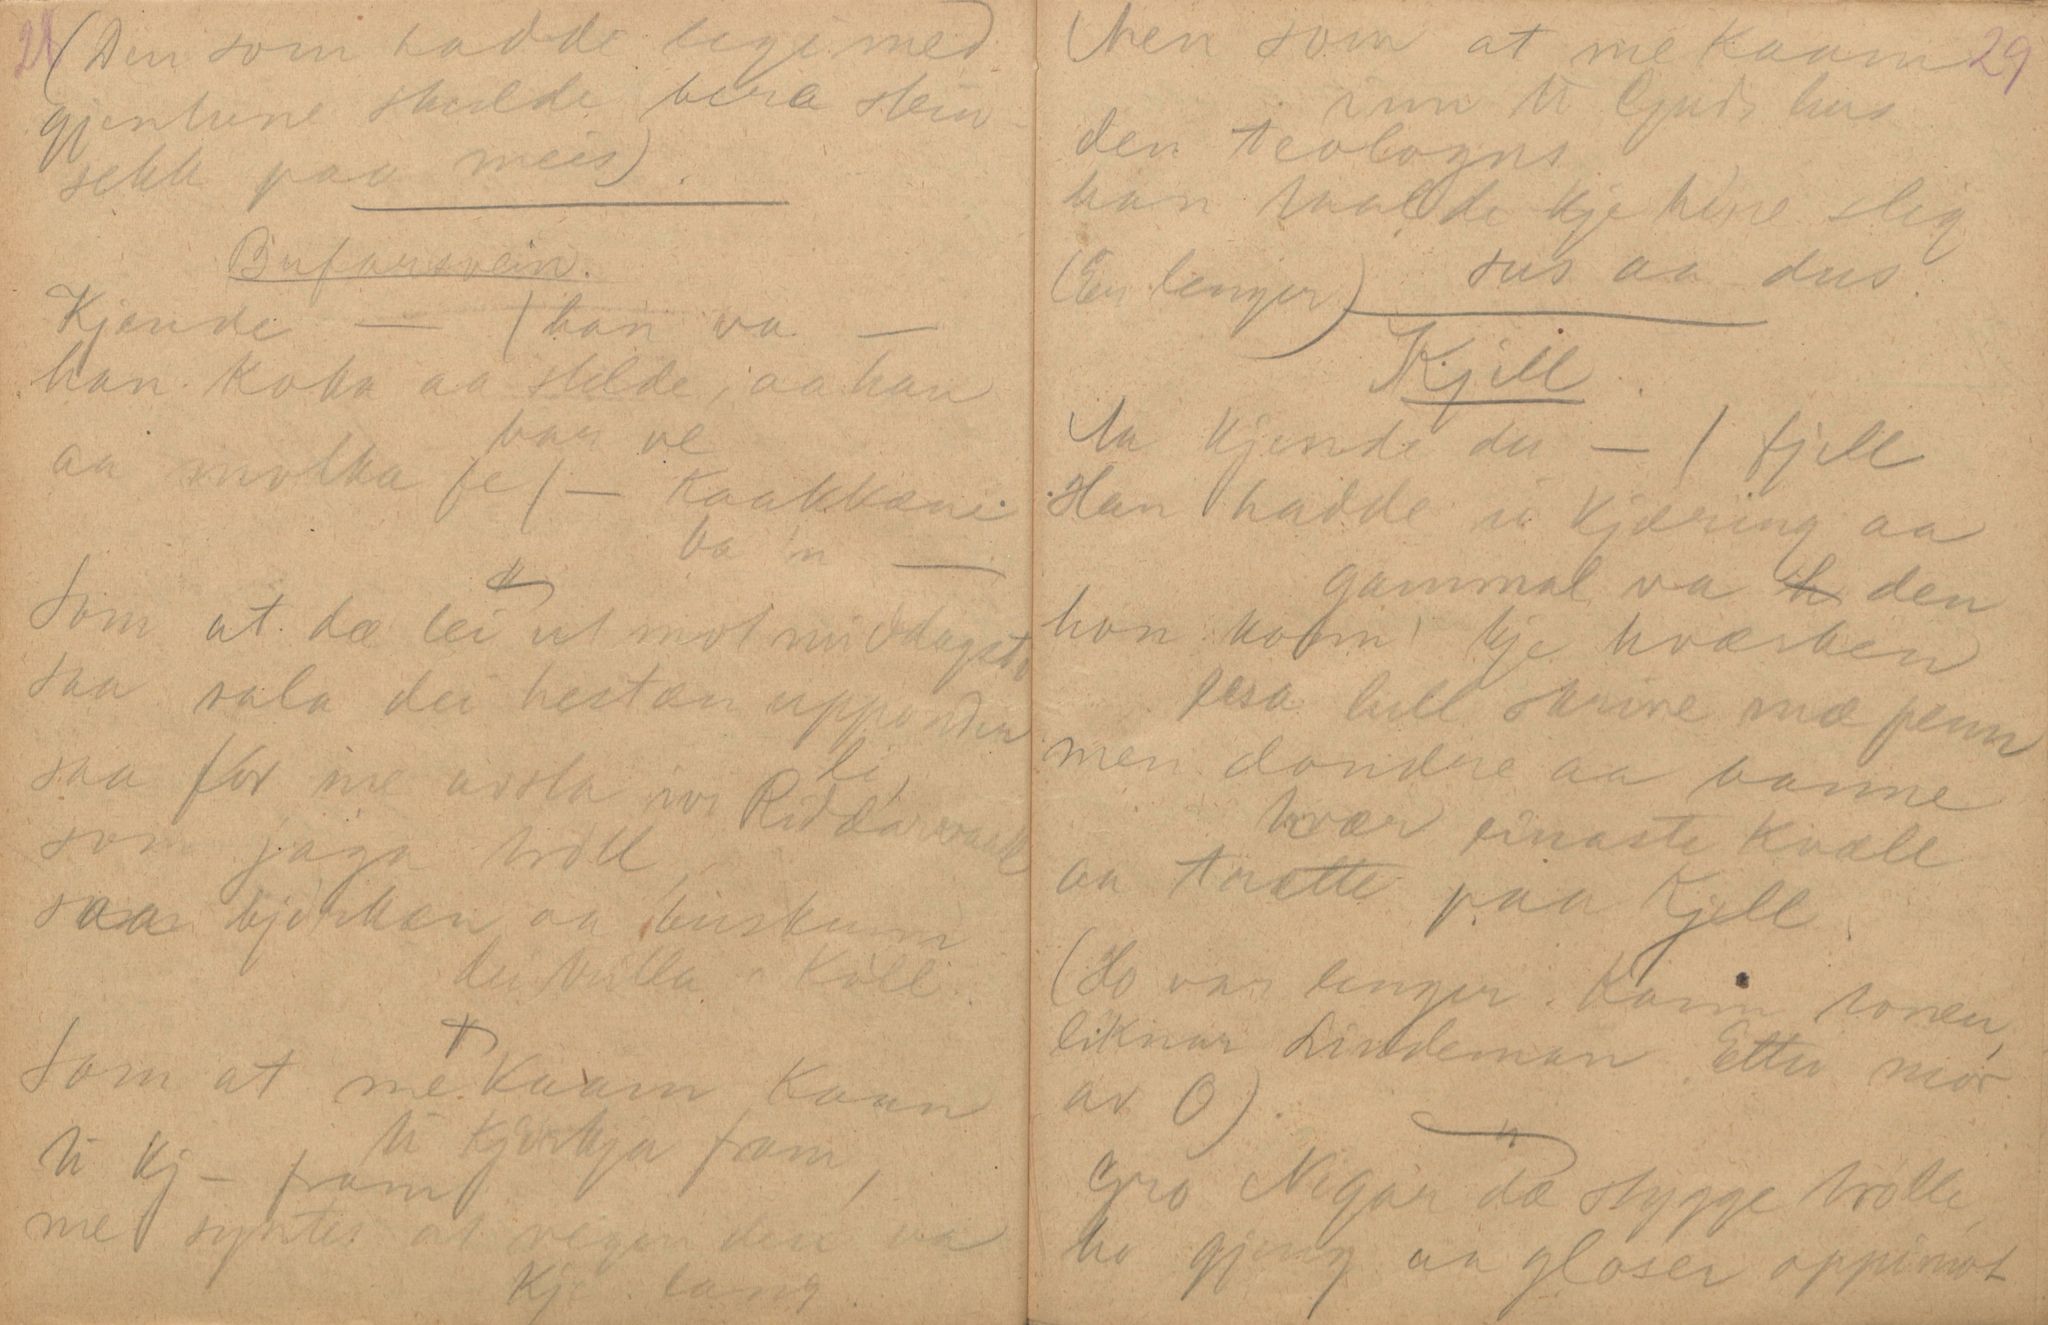 28
(Den som hadde lege med
gjentune skulde bera stein-
sekk paa meis).
Bufarsvein.
Kjende — / han va —
han koka aa stelde, aa han
bar ve
aa molka fe / — Kaakkane
va 'n —
"
Som at dæ lei ut mot middagsti
saa sala dei hestan uppunder
li,
saa for me avsta ivi Riddarvoll
som jaga troll,
saa bjørkan aa buskum
dei trilla i koll.
"
Som at me kaam
ti kjørkja fram,
ti kj – fram
me syntes at vegen den va
kje lang.
29
Men som at me kaam
inn ti Gjuds hus
den teologus
han taalde kje hine slig
sus aa dus.
(Er lenger)
Kjell
Aa kjende du — / fjell
Han hadde ei kjæring aa
gammal va den
hon kom' kje hværken
lesa hell skrive mæ penn
men dondre aa banne
hvær einaste kvæll
aa trætte paa Kjell.
(Ho var lenger. Kann tonen,
liknar Lindeman. Etter mor
av O).
"
Gro Nigar dæ stygge trolle,
ho gjeng aa gloser oppimot